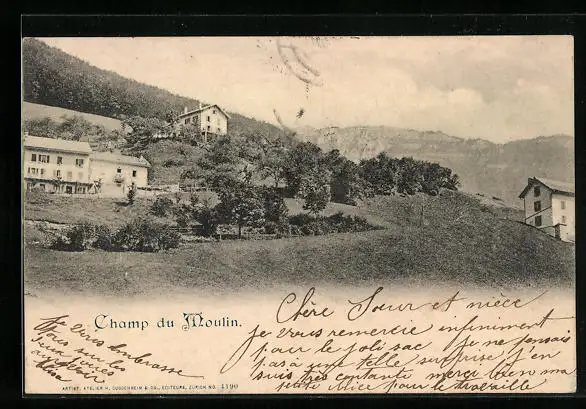 Champ du Moulin.
Chère Sœur et nièce
je vous remercie infiniment
pour le joli sac je ne pensais
pas à une telle surprise j'en
suis très contente merci bien ma
petite Alice pour le travaille
Je
Vous embrasse
tous
deux
ARTIST. ATELIER H. GUGGENHEIM & CO., EDITEURS, ZÜRICH NO. 1190